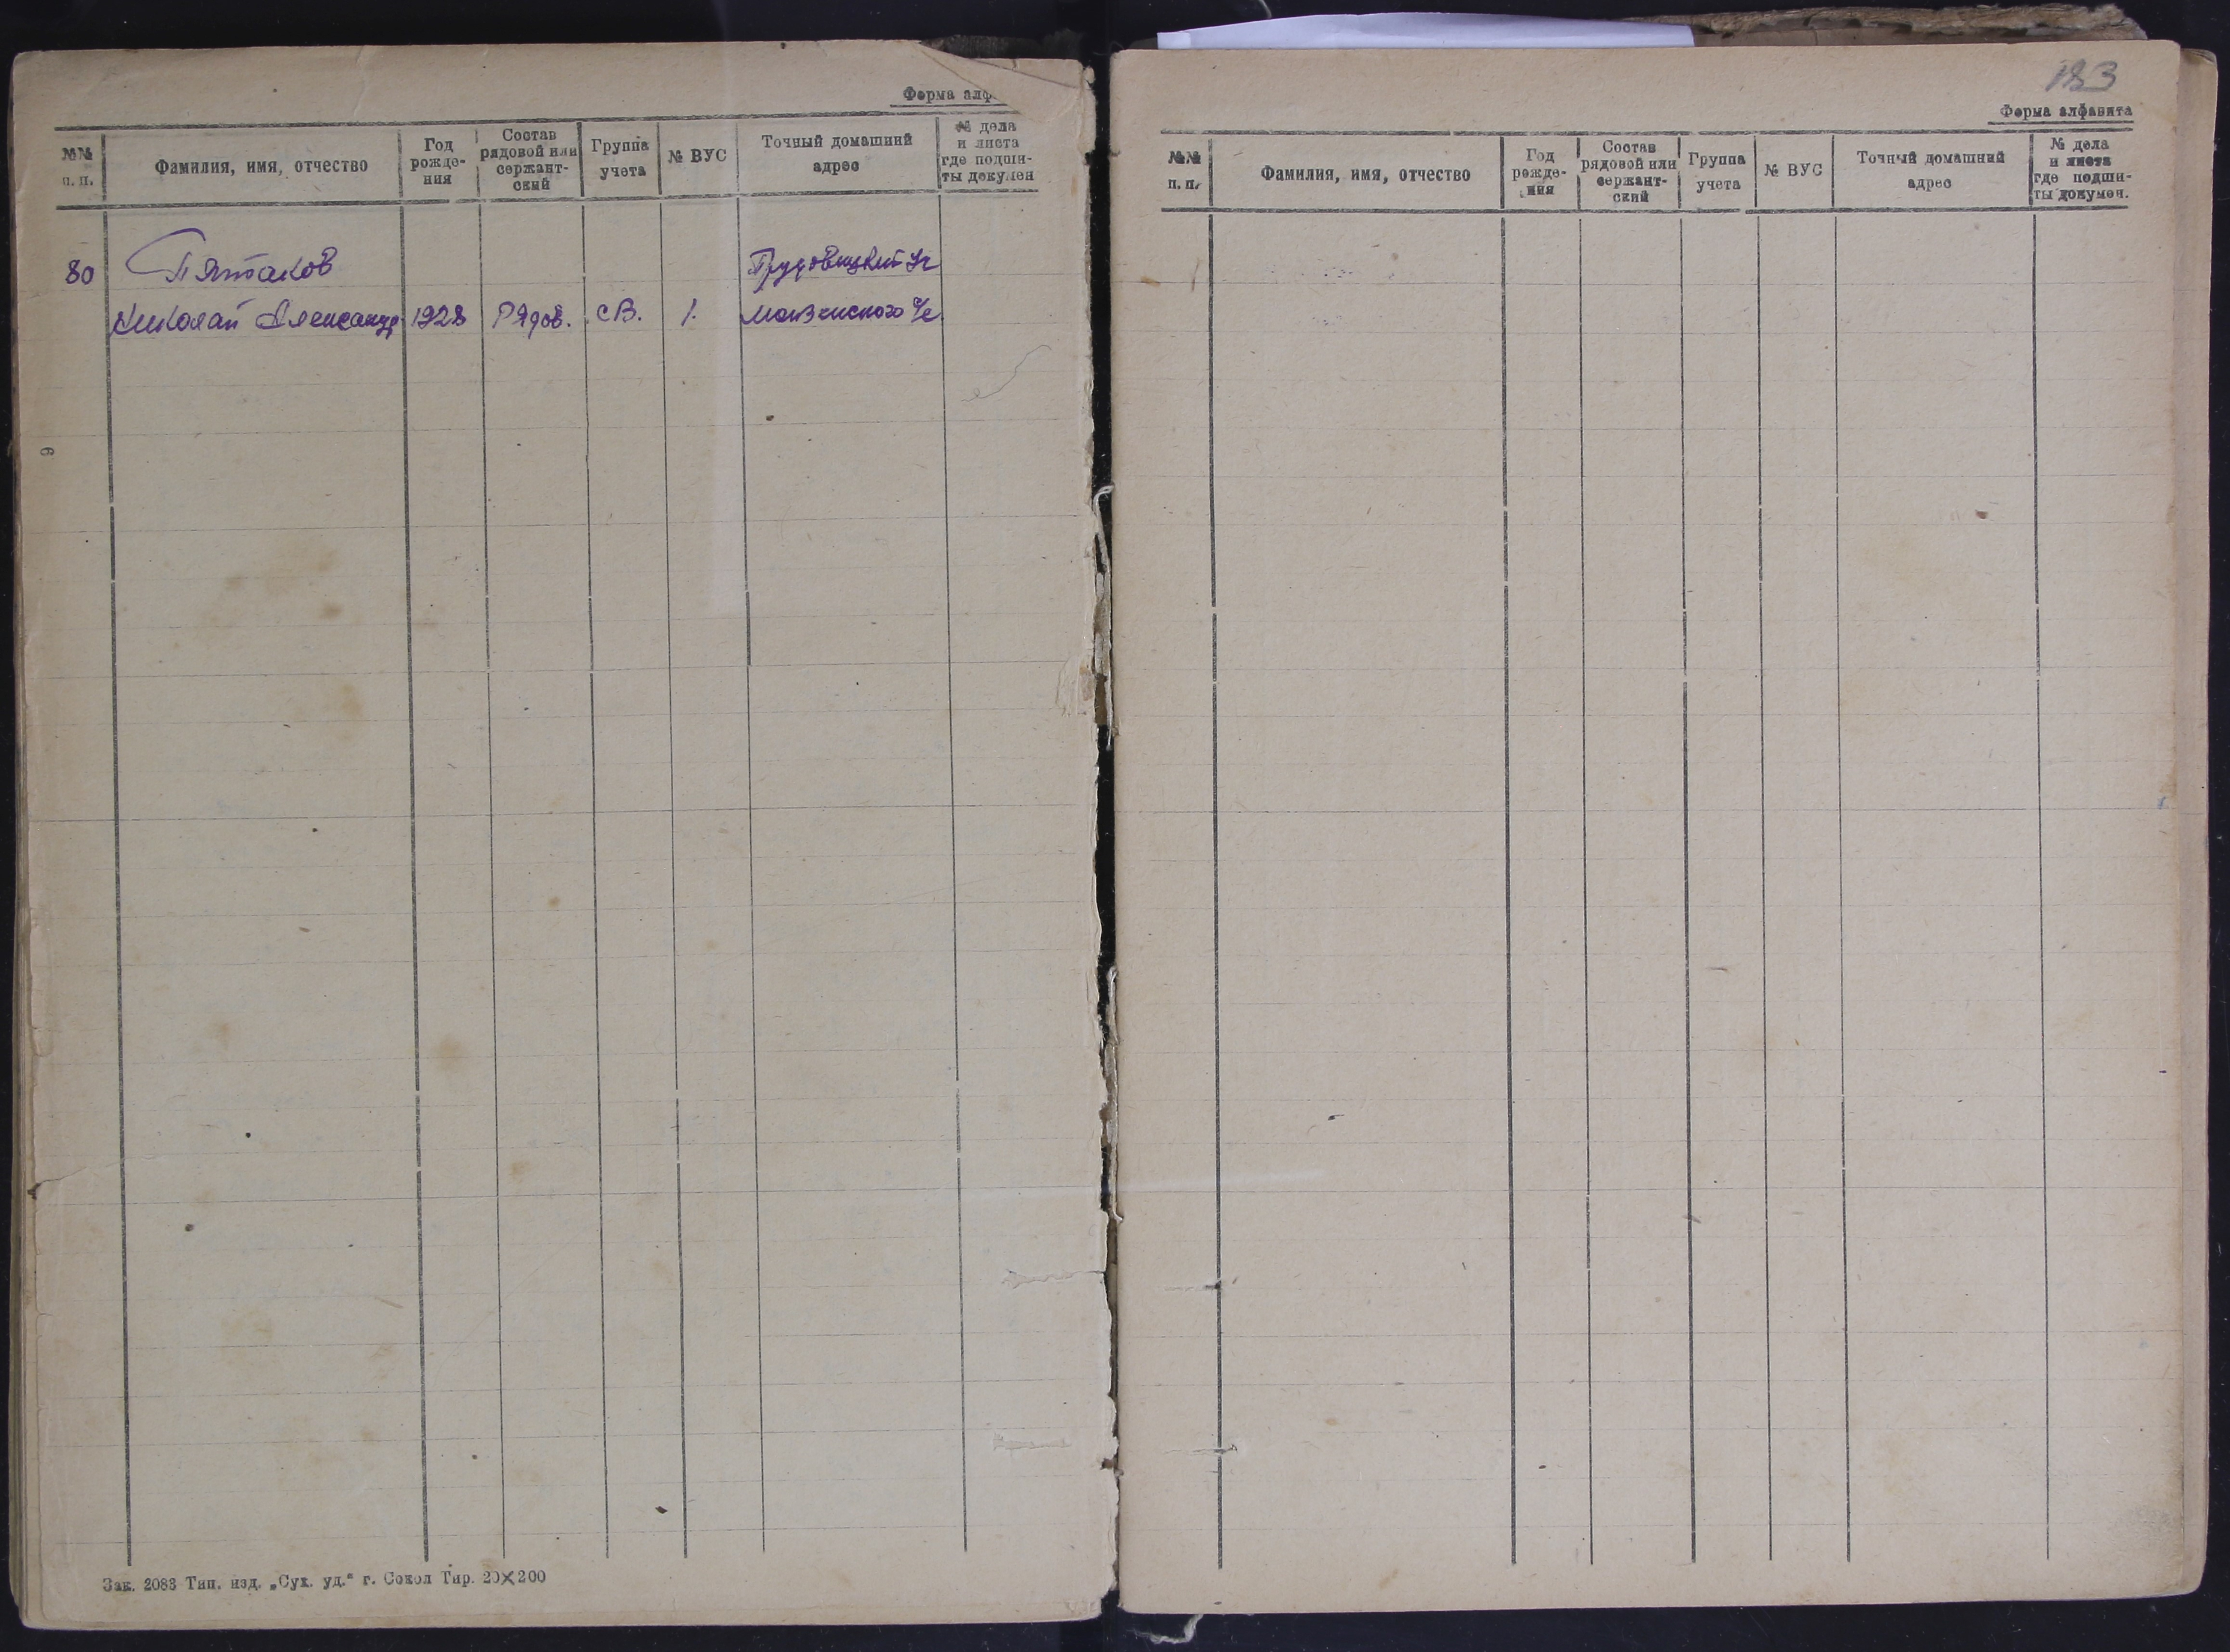 Форма алф
№№ п. п.
Фамилия, имя, отчество
Год рожде-ния
Состав рядовой или сержант-ский
Группа учета
№ ВУС
Точный домашний адрес
№ дела и листа где подши-ты докумен
80 Пятаков Трудовицкий
Николай Александр 1928 Рядов. СВ. 1. Монзенского с/с
9
Зак. 2083 Тип. изд. „Сух. уд.“ г. Сокол Тир. 20×200
183
Форма алфавита
№№ п. п.
Фамилия, имя, отчество
Год рожде-ния
Состав рядовой или сержант-ский
Группа учета
№ ВУС
Точный домашний адрес
№ дела и листа где подши-ты докумен.